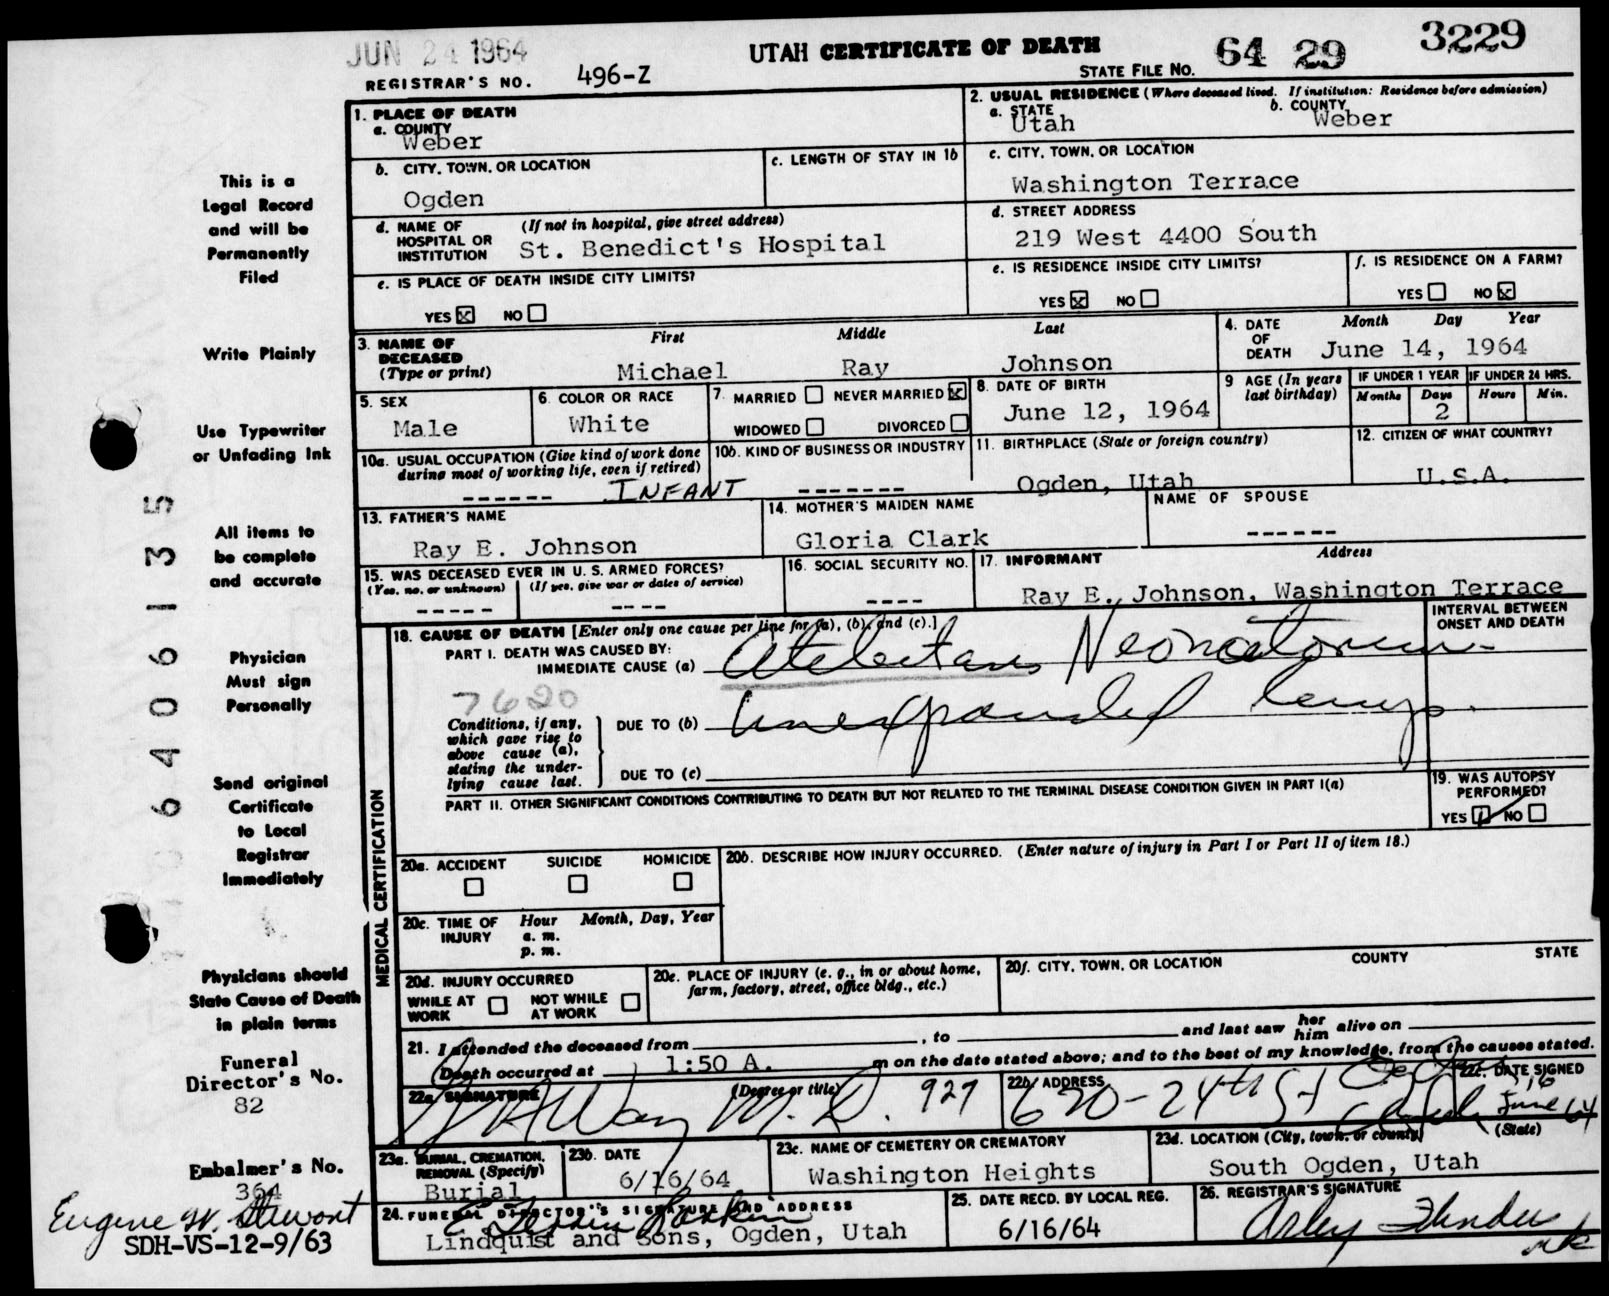 JUN 24 1964
UTAH CERTIFICATE OF DEATH
64 29 3229
REGISTRAR'S NO. 496-Z
STATE FILE NO.
1. PLACE OF DEATH
a. COUNTY
Weber
2. USUAL RESIDENCE (Where deceased lived. If institution: Residence before admission)
a. STATE
Utah
b. COUNTY
Weber
b. CITY, TOWN, OR LOCATION
Ogden
c. LENGTH OF STAY IN 1b
c. CITY, TOWN, OR LOCATION
Washington Terrace
d. NAME OF HOSPITAL OR INSTITUTION
(If not in hospital, give street address)
St. Benedict's Hospital
d. STREET ADDRESS
219 West 4400 South
e. IS PLACE OF DEATH INSIDE CITY LIMITS?
YES ☒ NO ☐
e. IS RESIDENCE INSIDE CITY LIMITS?
YES ☒ NO ☐
f. IS RESIDENCE ON A FARM?
YES ☐ NO ☒
3. NAME OF DECEASED
(Type or print)
First Middle Last
Michael Ray Johnson
4. DATE OF DEATH
Month Day Year
June 14, 1964
5. SEX
Male
6. COLOR OR RACE
White
7. MARRIED ☐ NEVER MARRIED ☒
WIDOWED ☐ DIVORCED ☐
8. DATE OF BIRTH
June 12, 1964
9 AGE (In years last birthday)
IF UNDER 1 YEAR
Months Days
2
IF UNDER 24 HRS.
Hours Min.
10a. USUAL OCCUPATION (Give kind of work done during most of working life, even if retired)
------ INFANT
10b. KIND OF BUSINESS OR INDUSTRY
-------
11. BIRTHPLACE (State or foreign country)
Ogden, Utah
12. CITIZEN OF WHAT COUNTRY?
U.S.A.
13. FATHER'S NAME
Ray E. Johnson
14. MOTHER'S MAIDEN NAME
Gloria Clark
NAME OF SPOUSE
------
15. WAS DECEASED EVER IN U. S. ARMED FORCES?
(Yes, no, or unknown) (If yes, give war or dates of service)
----- ----
16. SOCIAL SECURITY NO.
----
17. INFORMANT Address
Ray E. Johnson, Washington Terrace
MEDICAL CERTIFICATION
18. CAUSE OF DEATH [Enter only one cause per line for (a), (b), and (c).]
INTERVAL BETWEEN ONSET AND DEATH
PART I. DEATH WAS CAUSED BY:
IMMEDIATE CAUSE (a) Atelectasis Neonatorum
7620
Conditions, if any, which gave rise to above cause (a), stating the underlying cause last.
DUE TO (b) Unexpanded lungs.
DUE TO (c)
PART II. OTHER SIGNIFICANT CONDITIONS CONTRIBUTING TO DEATH BUT NOT RELATED TO THE TERMINAL DISEASE CONDITION GIVEN IN PART I(a)
19. WAS AUTOPSY PERFORMED?
YES ☑ NO ☐
20a. ACCIDENT SUICIDE HOMICIDE
☐ ☐ ☐
20b. DESCRIBE HOW INJURY OCCURRED. (Enter nature of injury in Part I or Part II of item 18.)
20c. TIME OF INJURY
Hour Month, Day, Year
a. m.
p. m.
20d. INJURY OCCURRED
WHILE AT WORK ☐ NOT WHILE AT WORK ☐
20e. PLACE OF INJURY (e. g., in or about home, farm, factory, street, office bldg., etc.)
20f. CITY, TOWN, OR LOCATION COUNTY STATE
21. I attended the deceased from , to and last saw her him alive on
Death occurred at 1:50 A. m on the date stated above; and to the best of my knowledge, from the causes stated.
22a. SIGNATURE (Degree or title)
Way M.D. 927
22b. ADDRESS
620-24th St Ogden Utah
22c. DATE SIGNED
16 June 64
23a. BURIAL, CREMATION, REMOVAL (Specify)
Burial
23b. DATE
6/16/64
23c. NAME OF CEMETERY OR CREMATORY
Washington Heights
23d. LOCATION (City, town, or county) (State)
South Ogden, Utah
24. FUNERAL DIRECTOR'S SIGNATURE AND ADDRESS
Larkin
Lindquist and Sons, Ogden, Utah
25. DATE RECD. BY LOCAL REG.
6/16/64
26. REGISTRAR'S SIGNATURE
mk
This is a
Legal Record
and will be
Permanently
Filed
Write Plainly
Use Typewriter
or Unfading Ink
All items to
be complete
and accurate
Physician
Must sign
Personally
Send original
Certificate
to Local
Registrar
Immediately
Physicians should
State Cause of Death
in plain terms
Funeral
Director's No.
82
Embalmer's No.
364
Eugene W. Stewart
SDH-VS-12-9/63
6 4 0 6 1 3 5